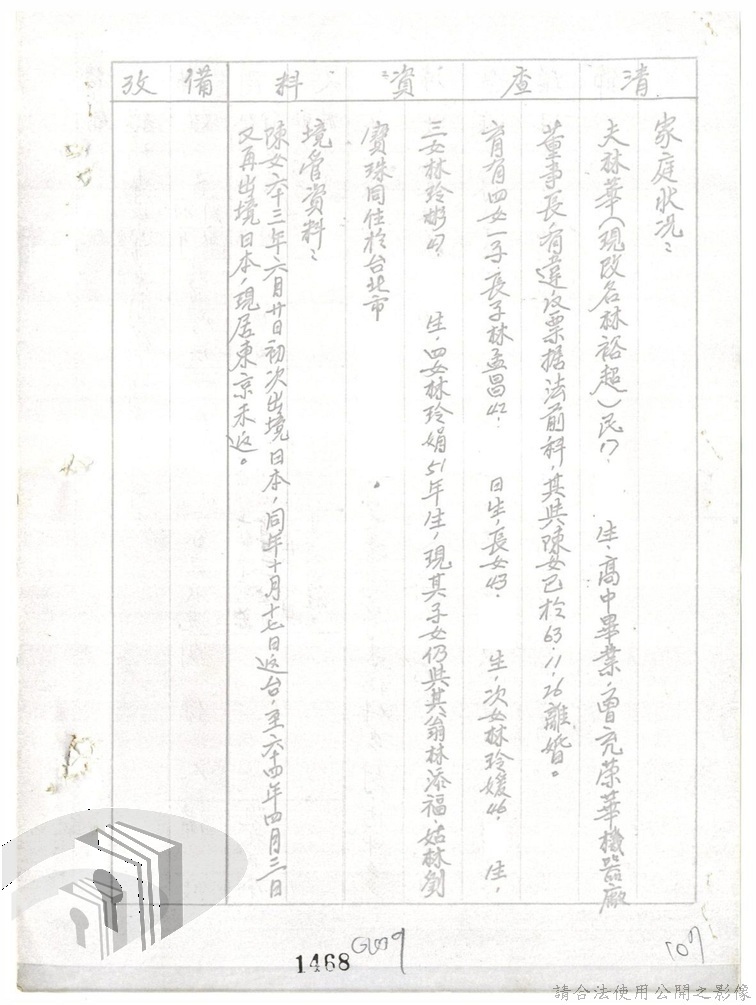 清查資料備攷
家庭狀況：
夫林華（現改名林裕超）民17. 生，高中畢業，曾充榮華機器廠
董事長，有違反票據法前科，其與陳女已於63.11.26離婚。
育有四女一子，長子林孟昌42. 日生，長女43. 生，次女林玲媛46. 生，
三女林玲彬47. 生，四女林玲娟51年生，現其子女仍與其翁林添福、姑林劉
寶珠同住於台北市
境管資料：
陳女六十三年六月廿日初次出境日本，同年十月十七日返台，至六十四年四月三日
又再出境日本，現居東京未返。
1468
107
請合法使用公開之影像